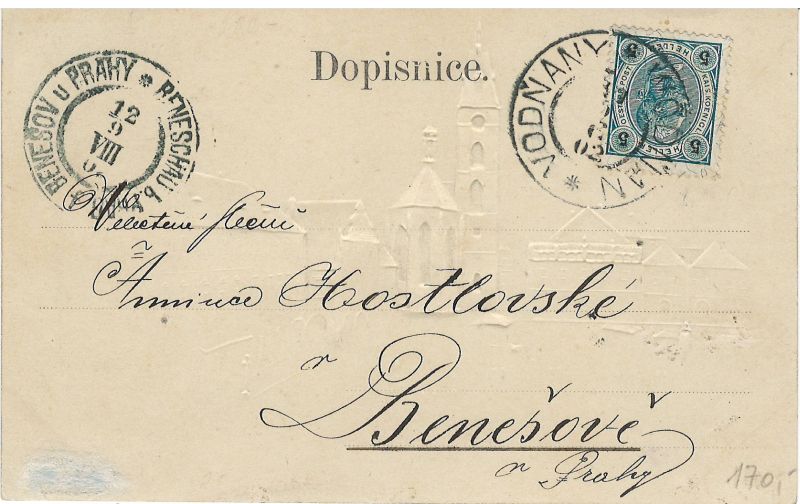 Dopisnice.
BENEŠOV u PRAHY * BENESCHAU b.
12
9
VIII
VODŇANY
*
02
5 5
HELLER
KAIS. KOENIGL.
5 5
Velectěné slečně
Amince Kostlovské
v
Benešově
u Prahy
170,-